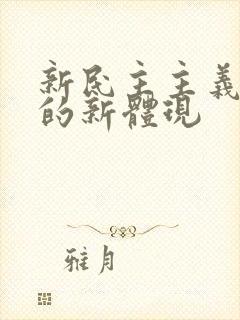 新民主主義
的新體現
雅月